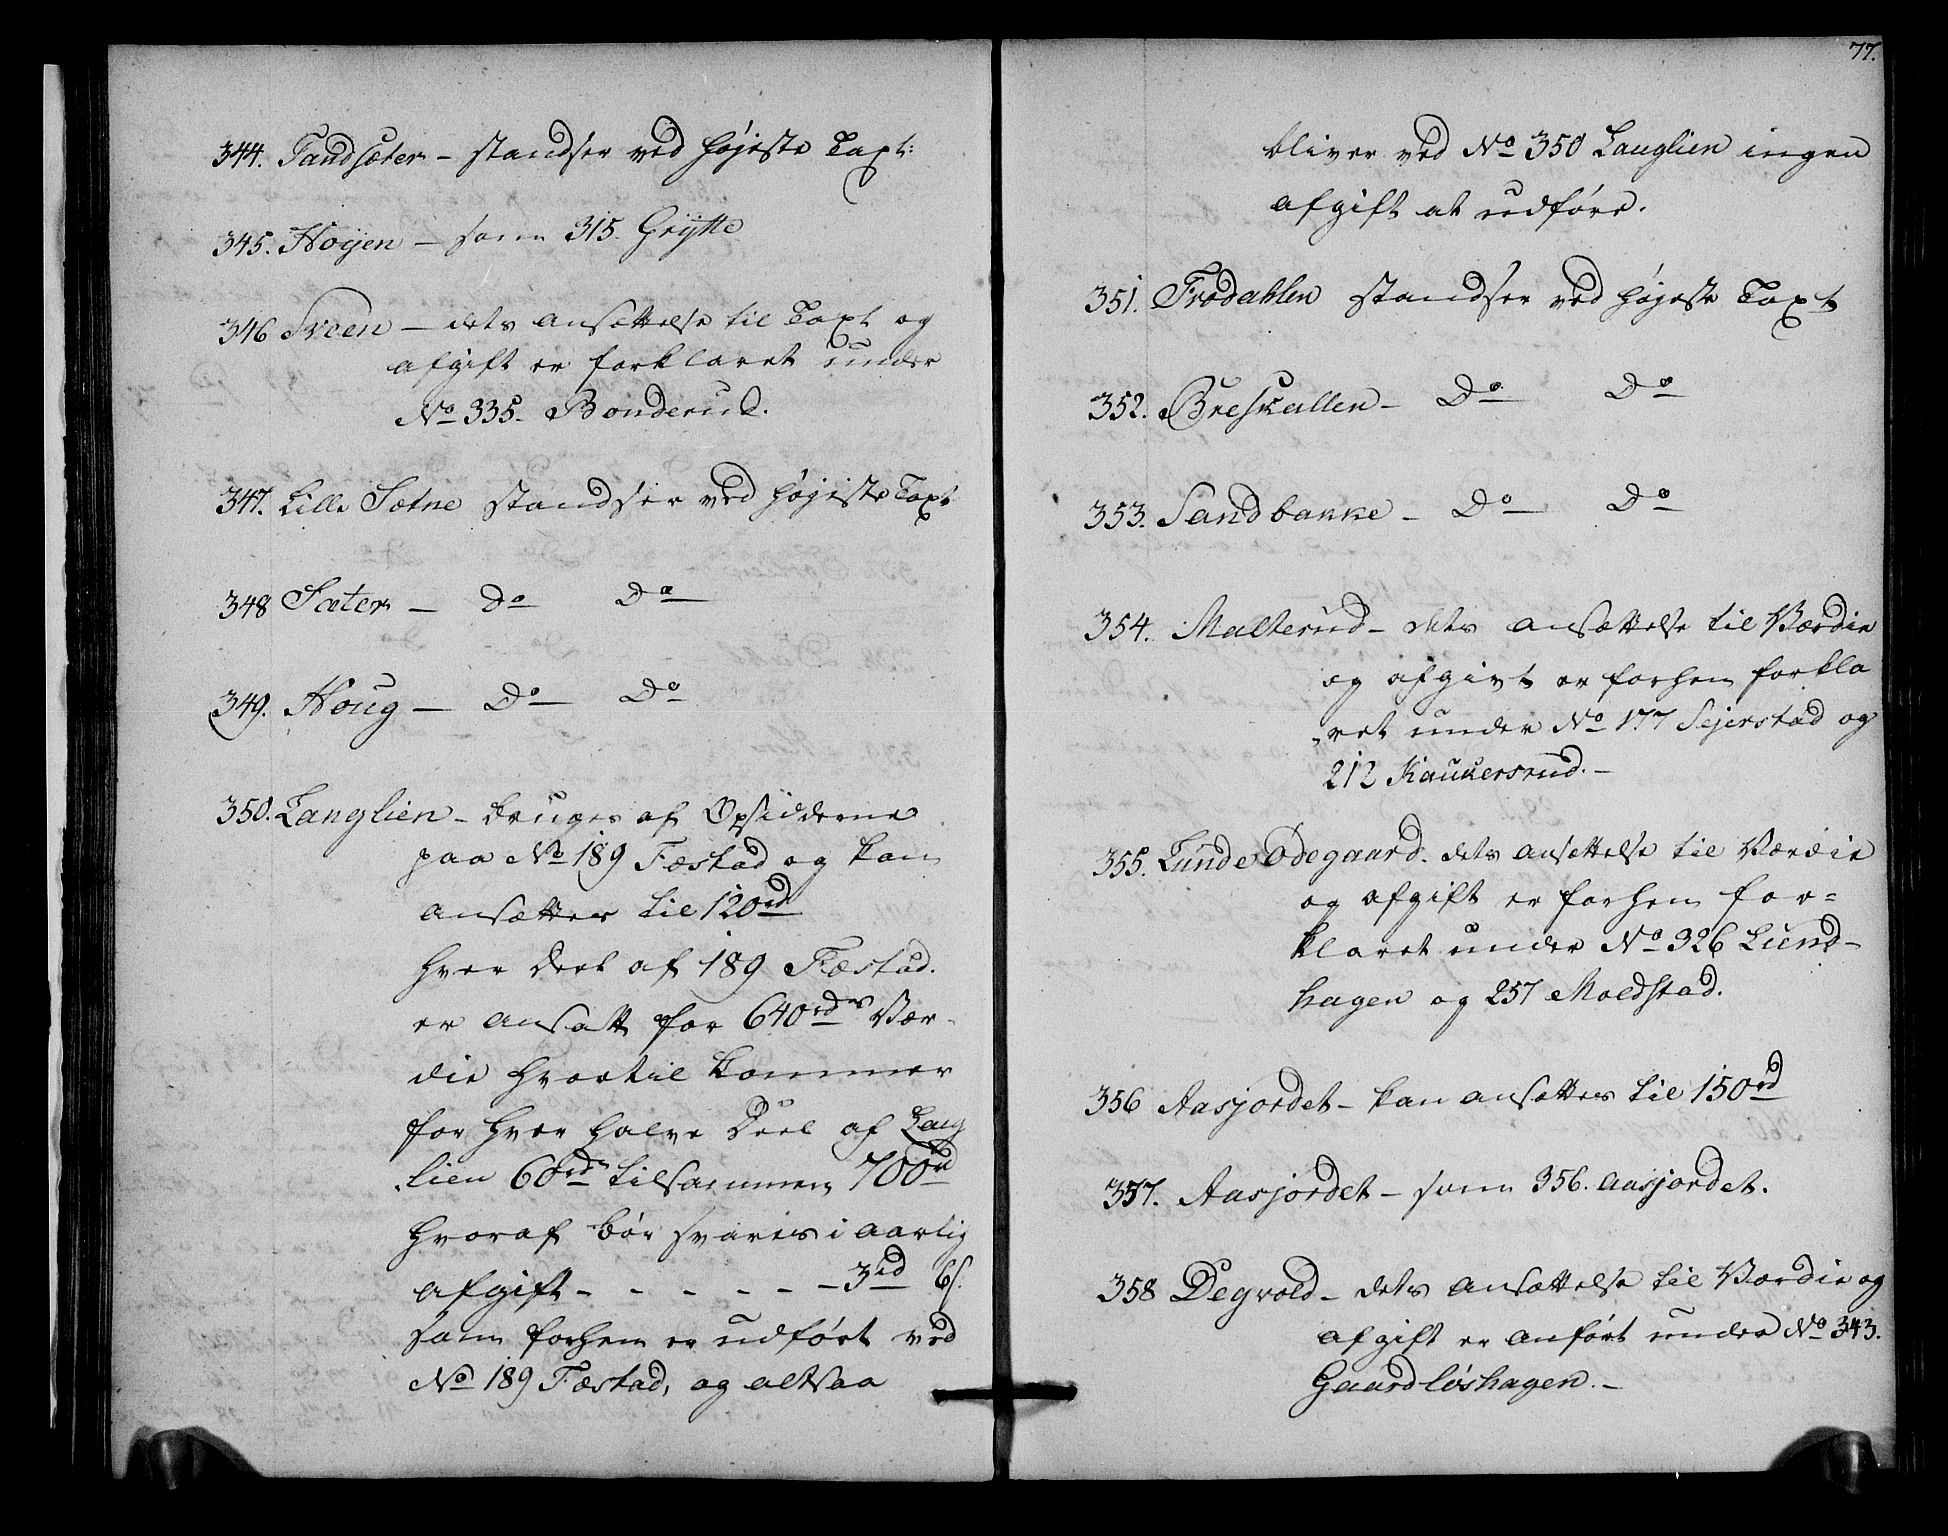 344. Tandsæter - standser ved højeste Taxt:
345. Hoÿen - som 315. Grÿtte
346 Sveen - dets ansættelse til Taxt og
afgift er forklaret under
No 335. Bonderud.
347. Lille Sætne standser ved højeste Taxt
348 Sæter - Do Do
349. Houg - Do Do
350. Langlien - bruges af Opsidderne
paa No 189 Fæstad og kan
ansættes til 120rd
hver Deel af 189 Fæstad.
er ansatt for 640rds Vær-
die hvortil kommer
for hver halve Deel af Lang
lien 60rd tilsammen 700rd
hvoraf bør svares i aarlig
afgift - - - - - - 3rd 6s.
som forhen er udført ved
No 189 Fæstad, og altsaa
77.
bliver ved No 350 Langlien ingen
afgift at udføre.
351. Frodahlen standser ved højeste Taxt
352. Breskallen - Do Do
353. Sandbakke - Do Do
354. Malterud - dets ansættelse til Værdie
og afgivt er forhen forkla
ret under No 177 Sejerstad og
212 Kaukersrud. -
355. Lunde Ødegaard. dets ansættelse til Værdie
og afgift er forhen for=
klaret under No 326 Lund-
hagen og 257 Moldstad.
356 Aasjordet - kan ansættes til 150rd
357. Aasjordet - som 356. Aasjordet.
358 Degvold - dets ansættelse til Værdie og
afgift er anført under No 343.
Gaardløshagen. -